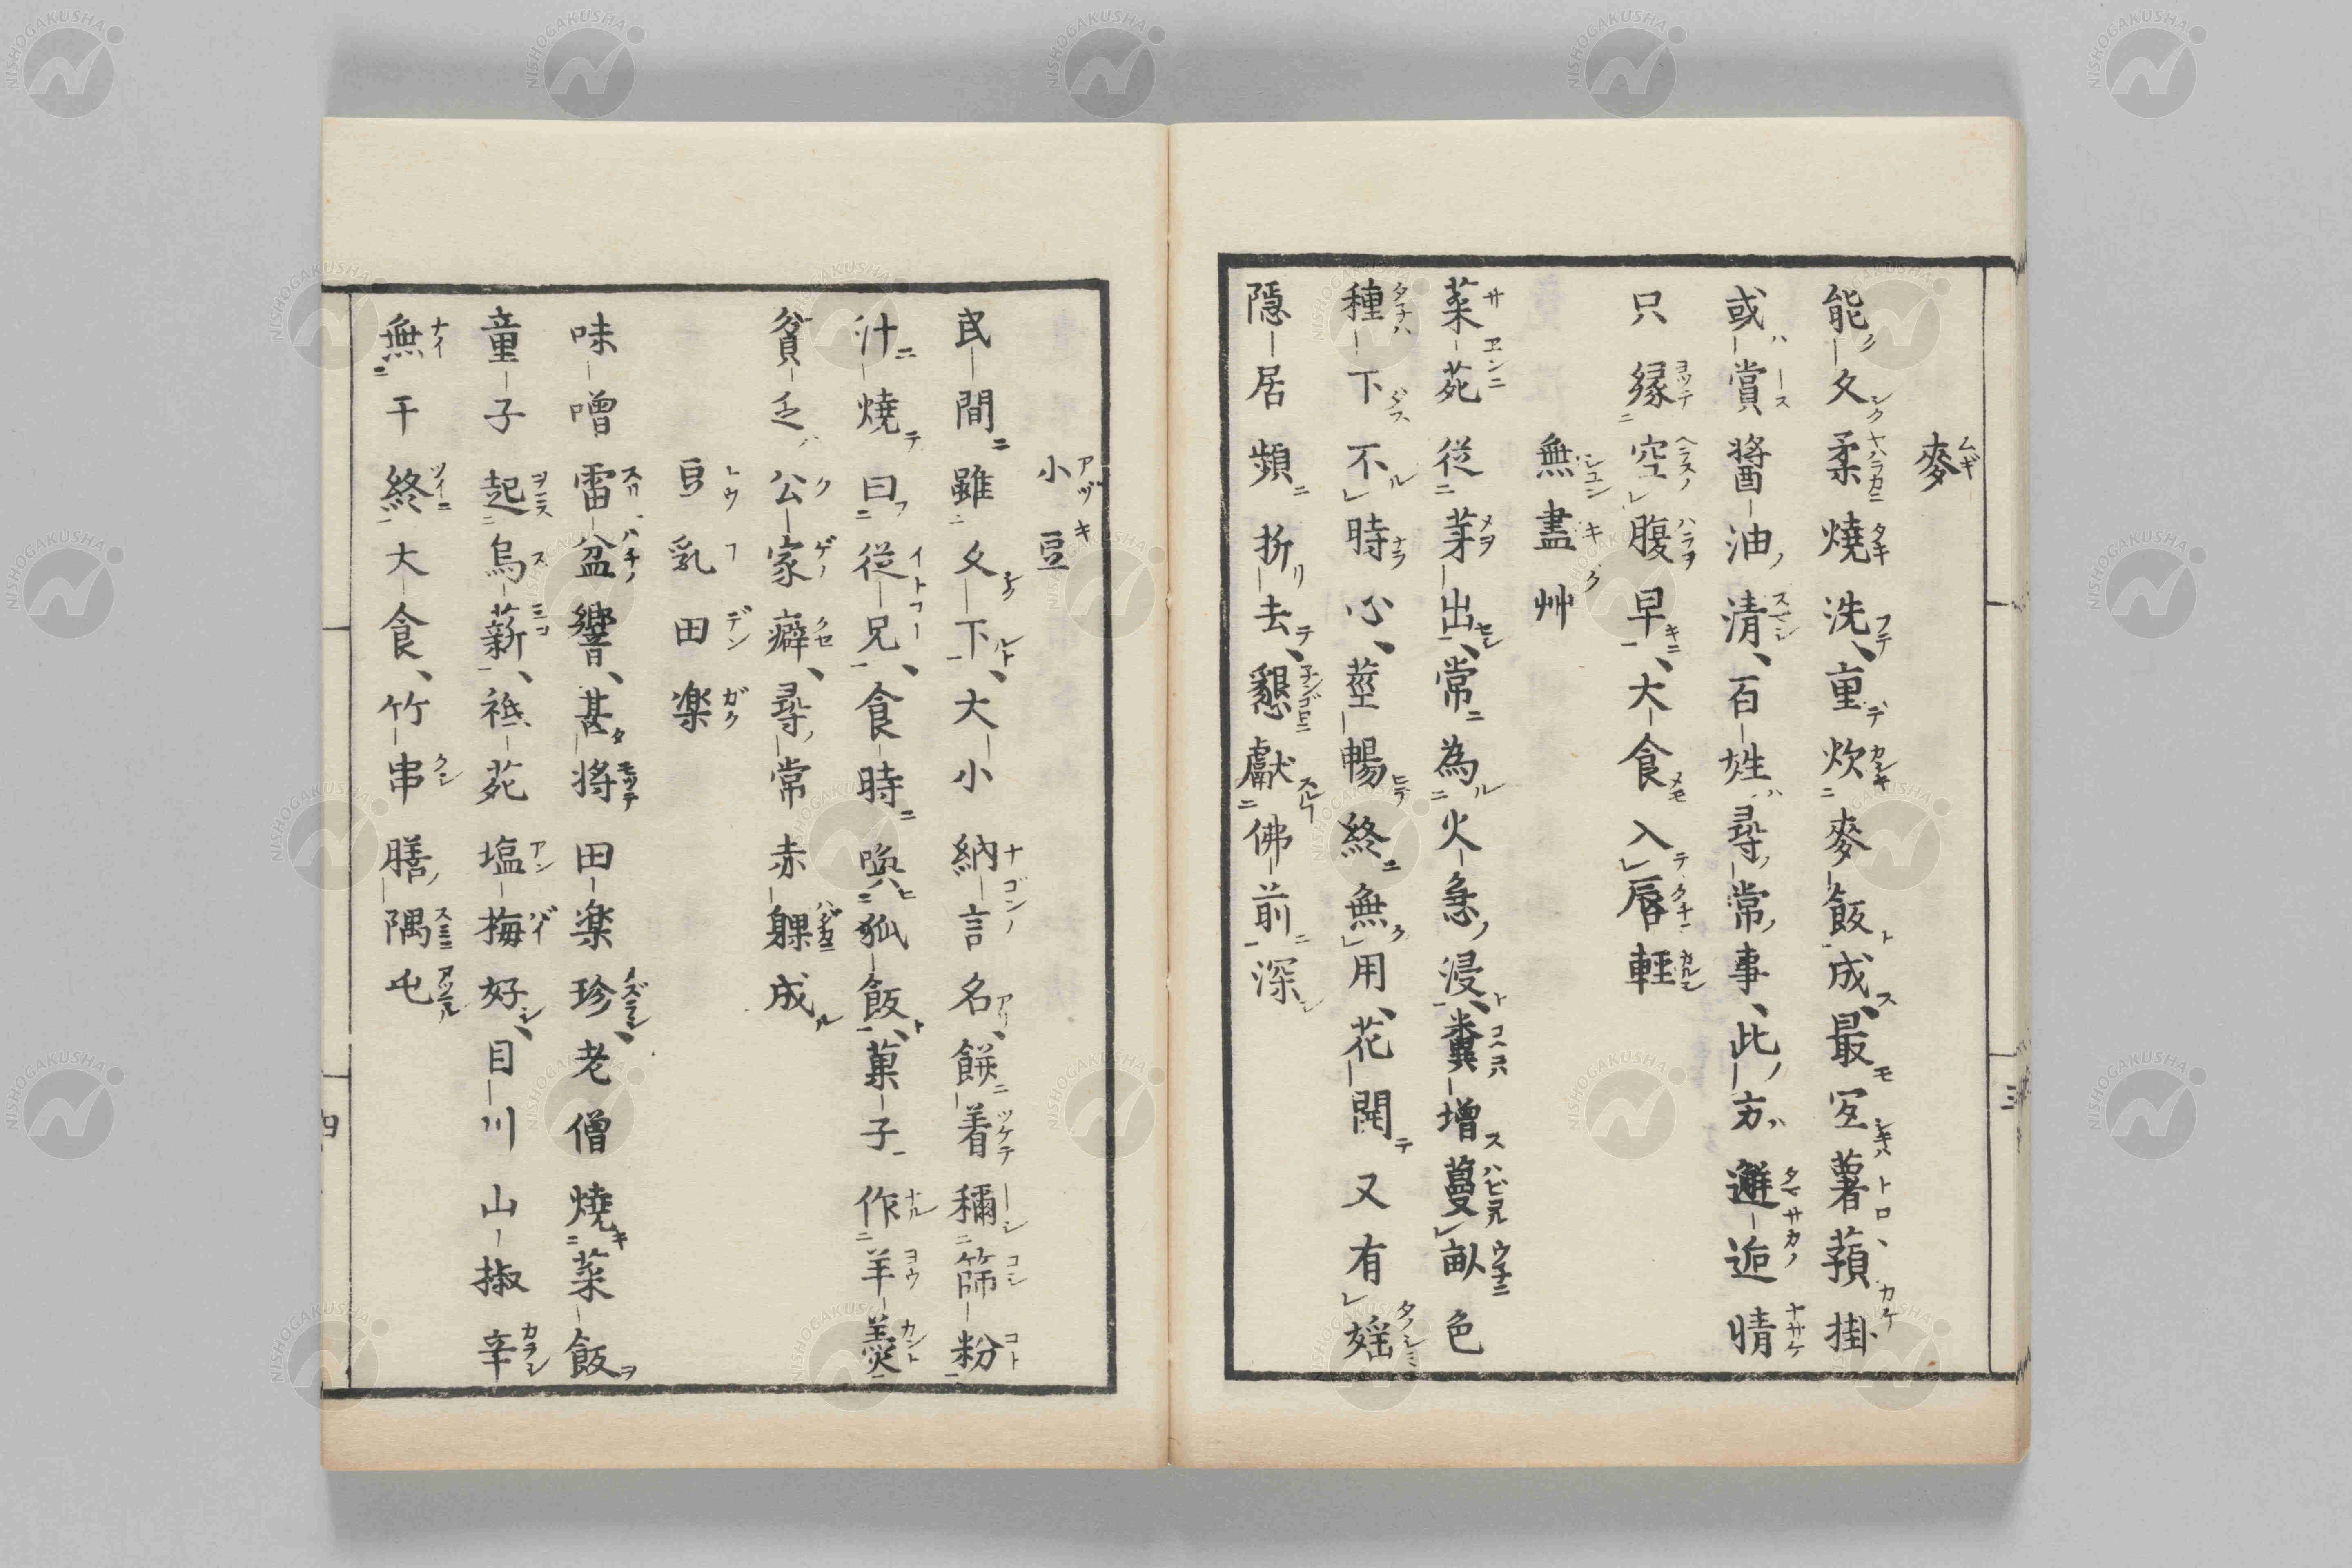 麥
能久柔燒洗重炊麥飯成最宜薯蕷掛
或賞醬油清百姓尋常事此方邂逅情
只縁空腹早大食入唇輕
無盡艸
菜苑從芽出常為火急浸糞增蔓畝色
種下不時心莖暢終無用花開又有媱
隱居頻折去懇獻佛前深
三
小豆
民間雖久下大小納言名餅着穪篩粉
汁燒曰從兄食時喚狐飯菓子作羊羹
貧乏公家癖尋常赤躶成
豆乳田楽
味噌雷盆響甚将田楽珍老僧燒菜飯
童子起烏薪祗苑塩梅好目川山椒辛
無干終大食竹串膳隅屯
四
NISHOGAKUSHA